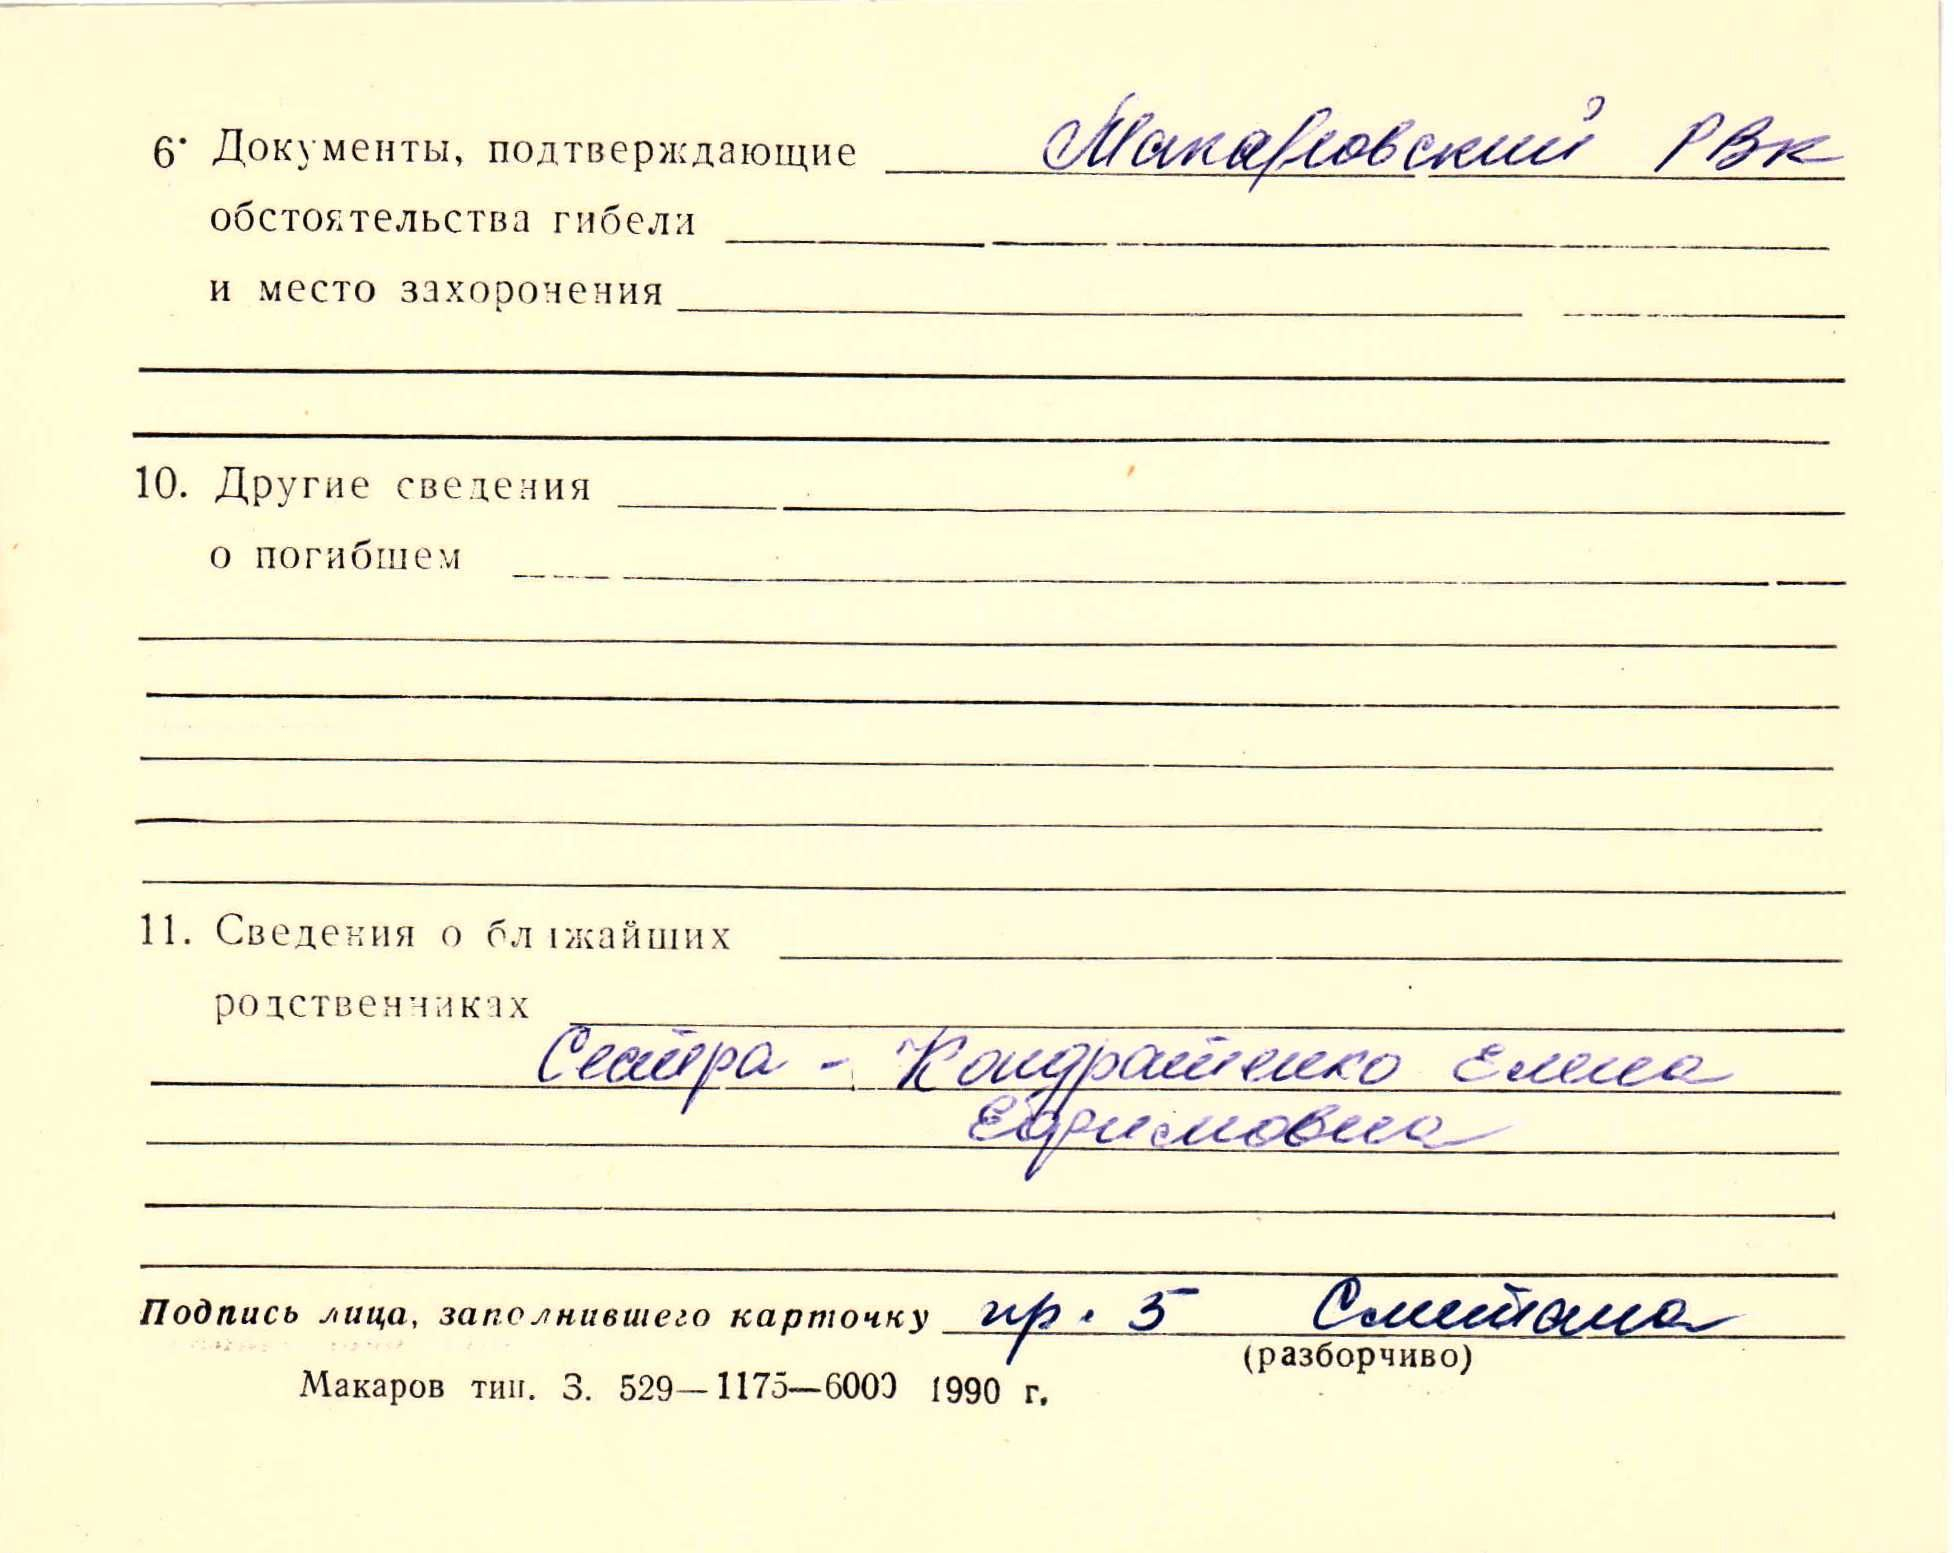 6. Документы, подтверждающие Макаровский РВК
обстоятельства гибели
и место захоронения
10. Другие сведения
о погибшем
11. Сведения о ближайших
родственниках
Сестра - Кондратенко Елена
Ефимовна
Подпись лица, заполнившего карточку пр. 5 Сметана
(разборчиво)
Макаров тип. З. 529—1175—6000 1990 г.